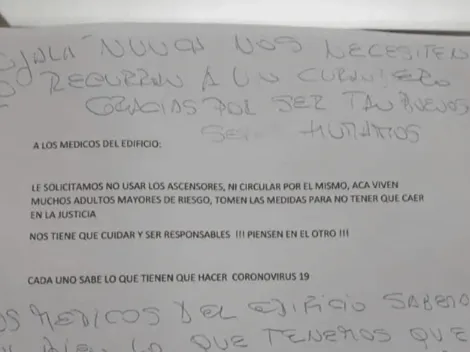 OJALA NUNCA NOS NECESITEN
O RECURRAN A UN CURANDERO
GRACIAS POR SER TAN BUENOS
SERES HUMANOS
A LOS MEDICOS DEL EDIFICIO:
LE SOLICITAMOS NO USAR LOS ASCENSORES, NI CIRCULAR POR EL MISMO, ACA VIVEN
MUCHOS ADULTOS MAYORES DE RIESGO, TOMEN LAS MEDIDAS PARA NO TENER QUE CAER
EN LA JUSTICIA
NOS TIENE QUE CUIDAR Y SER RESPONSABLES !!! PIENSEN EN EL OTRO !!!
CADA UNO SABE LO QUE TIENEN QUE HACER CORONOVIRUS 19
OS MEDICOS DEL EDIFICIO SABEMO
BIEN LO QUE TENEMOS QUE